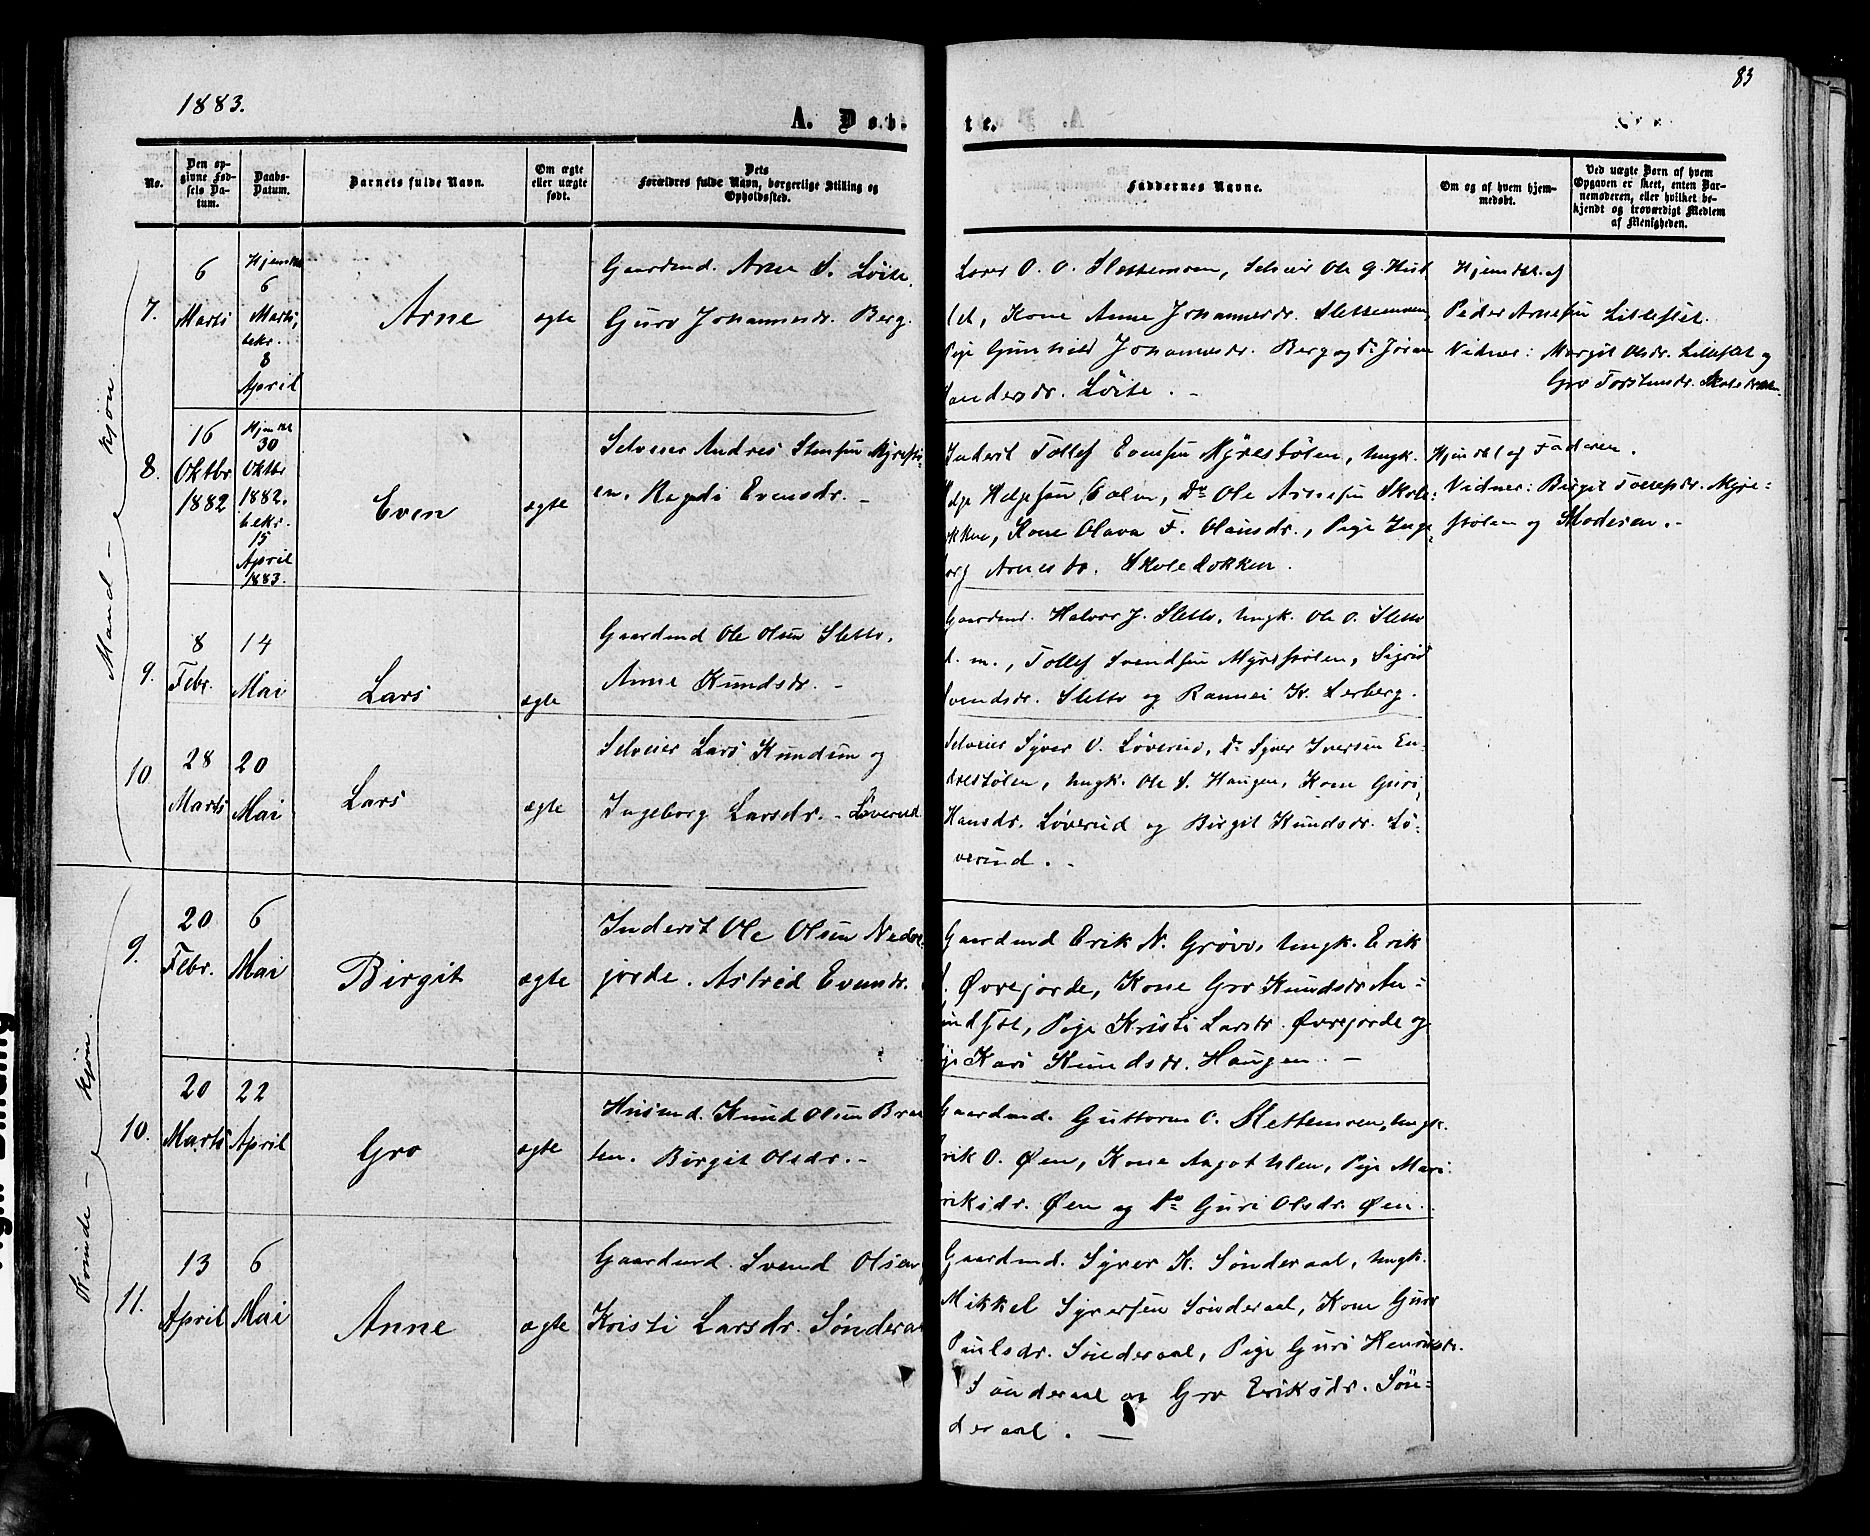 83
1883.
A. Døb
te.
No.
Den op-
givne Fød-
sels Da-
tum.
Daabs-
Datum.
Barnets fulde Navn.
Om ægte
eller uægte
født.
Dets
Forældres fulde Navn, borgerlige Stilling og
Opholdssted.
Faddernes Navne.
Om og af hvem hjem-
medøbt.
Ved uægte Børn af hvem
Opgaven er skeet, enten Bar-
nemoderen, eller hvilket be-
kjendt og troværdigt Medlem
af Menigheden.
Mand-kjøn.
7.
6
Marts
6
Marts,
bekr.
8
April
Arne
ægte
Gaardmd. Arne S. Løite.
Guro Johannesdr. Berg.
O. O. Slettemoen, Selveier Ole G. Hus
Kone Anne Johannesdr. Slettemoen
Gunhild Johannesdr. Berg og do Jøran
Løite. -
Hjemdbt. af
Peder Arnesen Lilleslet.
Vidner: Margit Olsdr. Lilleslet og
Gro Torstensdr.
8.
16
Oktbr
1882
30
Oktbr
1882.
bekr.
15
April
1883.
Even
ægte
Selveier Andres Stensen Myrestø-
en. Ragdi Evensdr. -
Inderst Tollef Evensen Myrestølen, Ungk.
Helgesen do Ole Arnesen Skole-
Kone Olava F. Olausdr., Pige Inge-
org Arnesdr. Skoledokken.
Hjemdbt af Faderen.
Vidner: Birgit Tollefsdr. Myre-
stølen og Moderen. -
9.
8
Febr.
14
Mai
Lars
ægte
Gaardmd Ole Olsen Sletto.
Anne Knudsdr. -
Gaardmd. Halvor J. Sletto, Ungk. Ole O. Sletto
d. m., Tollef Svendsen Myrestølen, Sigrid
Svendsdr. Sletto og Rannei K. Lerberg.
10
28
Marts
20
Mai
Lars
ægte
Selveier Lars Knudsen og
Ingeborg Larsdr. - Løverud
Selveier Syver O. Løverud, do Syver Iversen En-
drestølen, Ungk. Ole S. Haugen, Kone Guri
Hansdr. Løverud og Birgit Knudsdr. Lø-
verud. -
Kvinde-kjøn.
9.
20
Febr.
6
Mai
Birgit
ægte
Inderst Ole Olsen Nedre-
jorde. Astrid Evensdr.
Gaardmd Erik N. Grøvo, Ungk. Erik
Øvrejorde, Kone Gro Knudsdr. Au-
Pige Kristi Larsdr. Øvrejorde og
Kari Knudsdr. Haugen. -
10.
20
Marts
22
April
Gro
ægte
Husmd. Knud Olsen Braa
ten. Birgit Olsdr. -
Gaardmd. Guttorm O. Slettemoen, Ungk.
rik O. Øen, Kone Aagot Pige Mari
riksdr. Øen og do Guri Olsdr. Øen.
11.
13
April
6
Mai
Anne
ægte
Gaardmd. Svend Olsen
Kristi Larsdr. Sønderaal
Gaardmd. Syver K. Sønderaal, Ungk.
Mikkel Syversen Sønderaal, Kone Guri
Paulsdr. Sønderaal, Pige Guri Henriksdr.
Sønderaal og Gro Eriksdr. Søn-
deraal. -